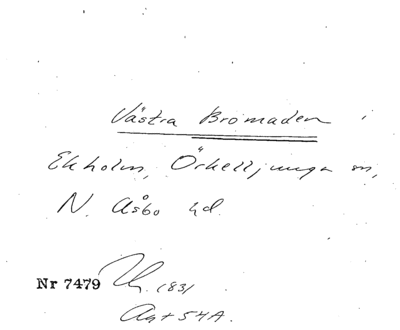 Västra Bromaden i
Ekholm, Örkelljunga sn,
N. Åsbo hd.
Nr 7479 1831